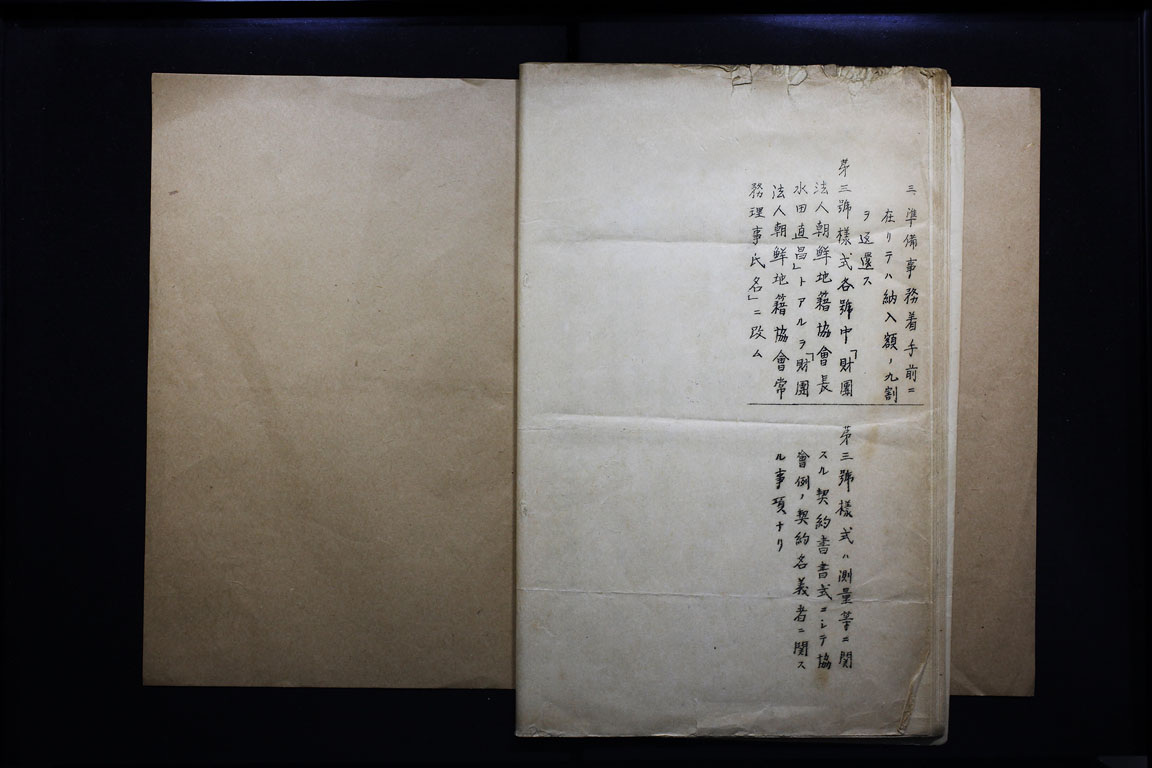 三、準備事務着手前ニ
在リテハ納入額ノ九割
ヲ返還ス
第三號様式各號中「財團
法人朝鮮地籍協會長
水田直昌」トアルヲ「財團
法人朝鮮地籍協會常
務理事氏名」ニ改ム
第三號様式ハ測量等ニ関
スル契約書書式ニシテ協
會側ノ契約名義者ニ関ス
ル事項ナリ